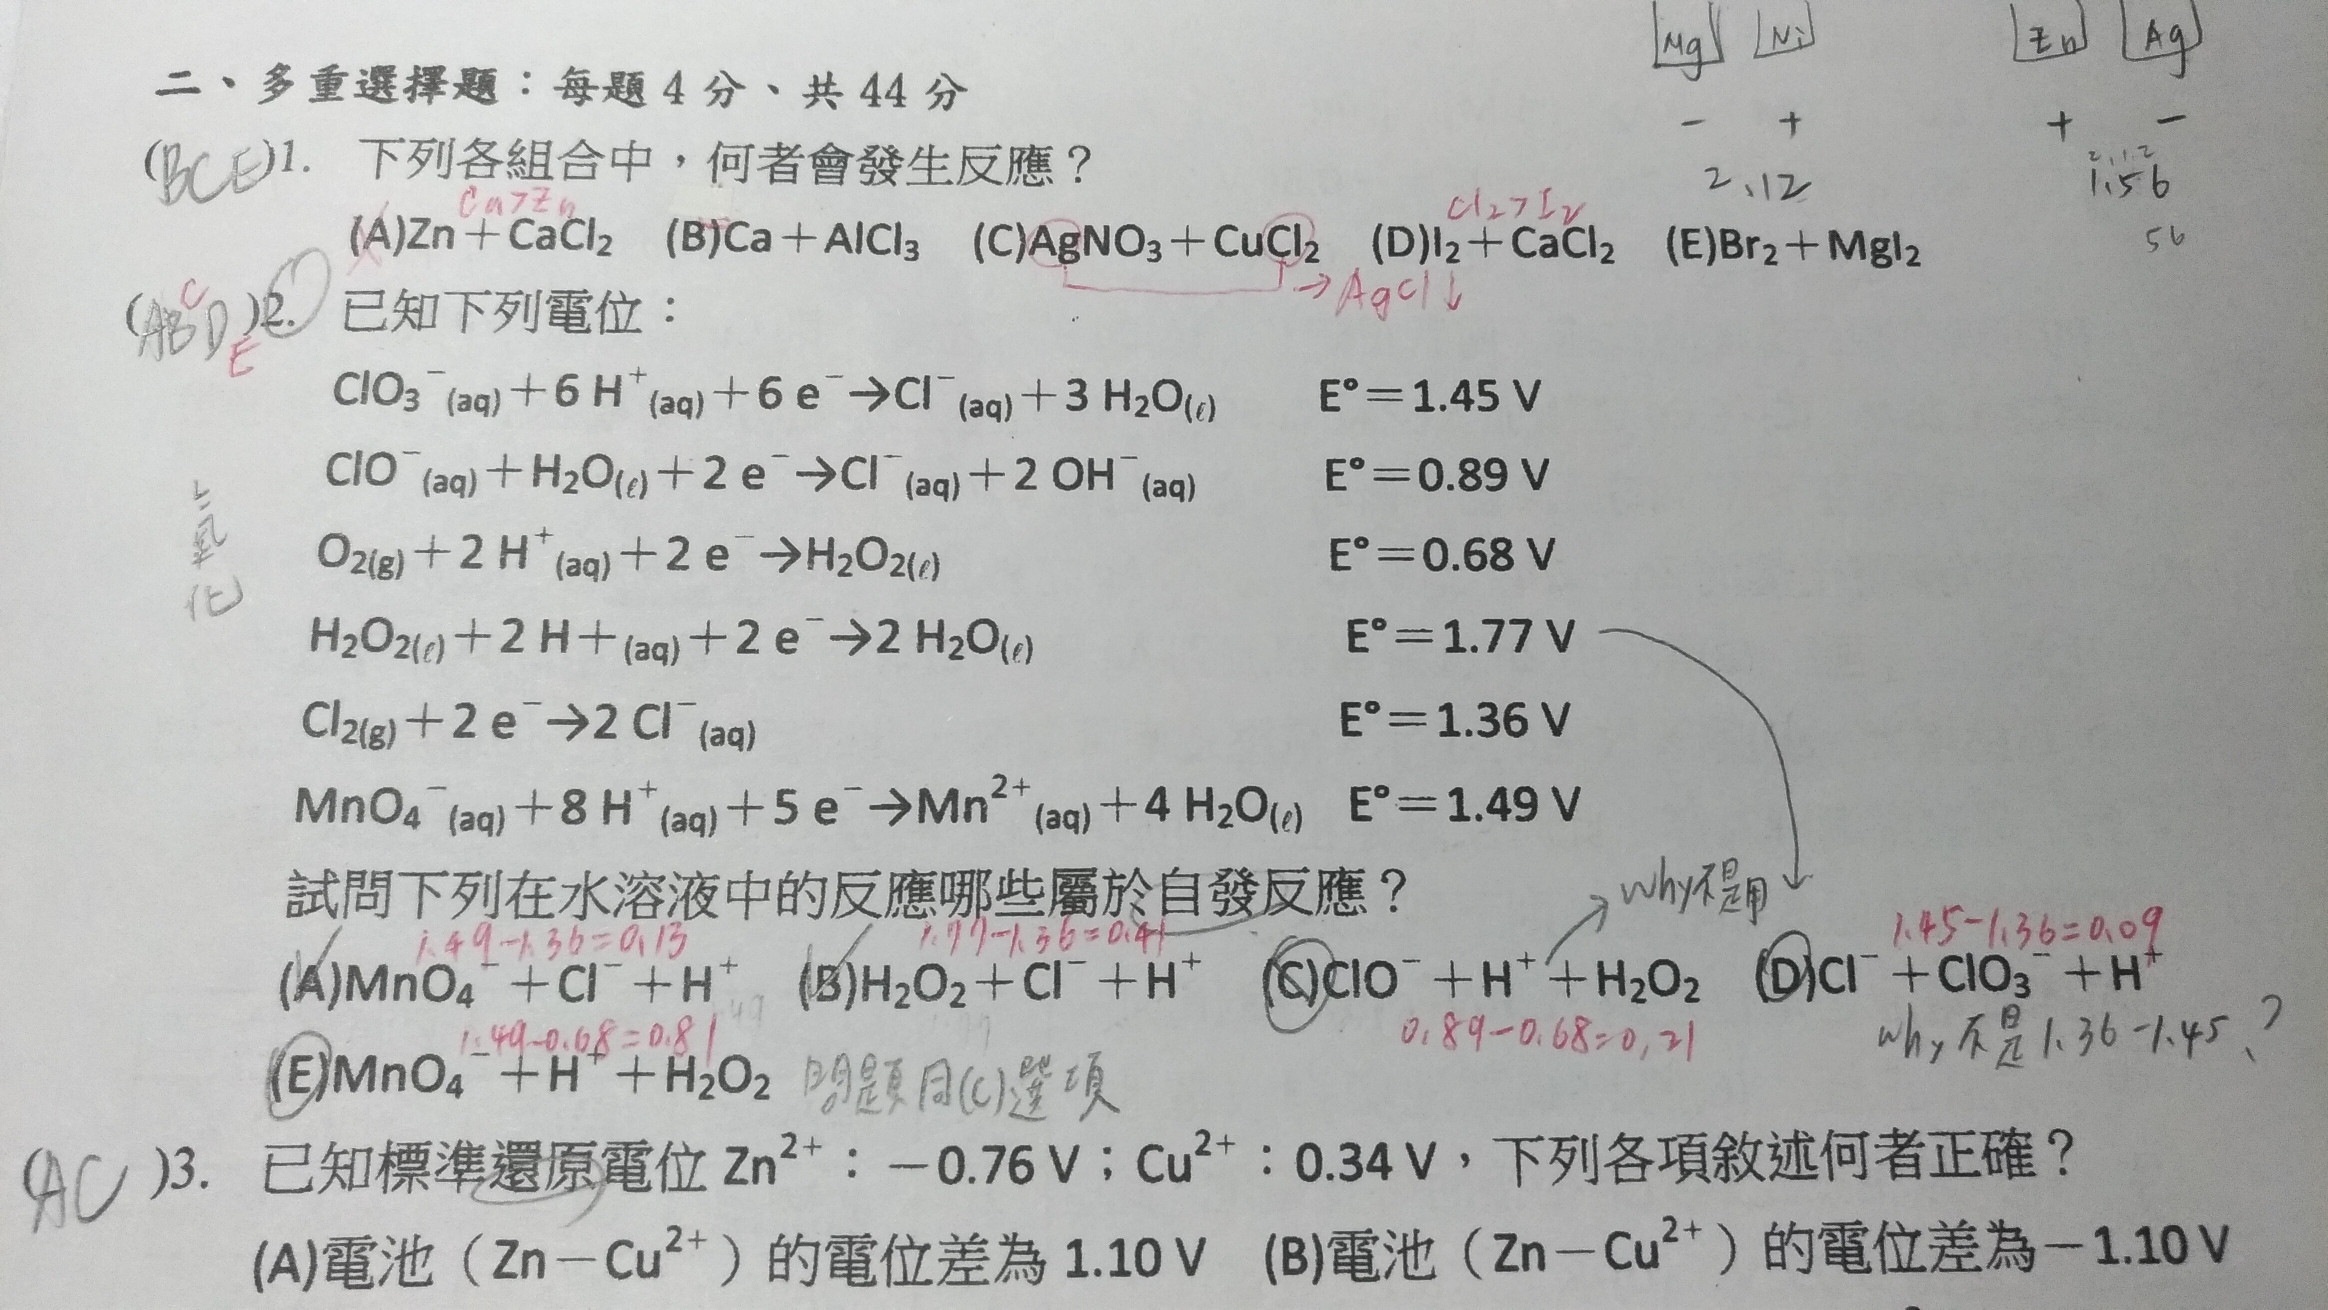 Mg Ni Zn Ag
− + + −
2.12 1.56
56
二、多重選擇題：每題 4 分、共 44 分
(BCE)1. 下列各組合中，何者會發生反應？
Ca>Zn Cl₂>I₂
(A)Zn＋CaCl₂ (B)Ca＋AlCl₃ (C)AgNO₃＋CuCl₂ (D)I₂＋CaCl₂ (E)Br₂＋MgI₂
→AgCl↓
(ABCDE)2. 已知下列電位：
ClO₃⁻(aq)＋6 H⁺(aq)＋6 e⁻→Cl⁻(aq)＋3 H₂O(ℓ) E°＝1.45 V
ClO⁻(aq)＋H₂O(ℓ)＋2 e⁻→Cl⁻(aq)＋2 OH⁻(aq) E°＝0.89 V
O₂(g)＋2 H⁺(aq)＋2 e⁻→H₂O₂(ℓ) E°＝0.68 V
H₂O₂(ℓ)＋2 H+(aq)＋2 e⁻→2 H₂O(ℓ) E°＝1.77 V
Cl₂(g)＋2 e⁻→2 Cl⁻(aq) E°＝1.36 V
MnO₄⁻(aq)＋8 H⁺(aq)＋5 e⁻→Mn²⁺(aq)＋4 H₂O(ℓ) E°＝1.49 V
氧化
試問下列在水溶液中的反應哪些屬於自發反應？
why不是用
1.49-1.36=0.13 1.77-1.36=0.41 1.45-1.36=0.09
(A)MnO₄⁻＋Cl⁻＋H⁺ (B)H₂O₂＋Cl⁻＋H⁺ (C)ClO⁻＋H⁺＋H₂O₂ (D)Cl⁻＋ClO₃⁻＋H⁺
1.49-0.68=0.81 0.89-0.68=0.21 why不是1.36-1.45?
(E)MnO₄⁻＋H⁺＋H₂O₂ 問題同(C)選項
(AC)3. 已知標準還原電位 Zn²⁺：－0.76 V；Cu²⁺：0.34 V，下列各項敘述何者正確？
(A)電池（Zn－Cu²⁺）的電位差為 1.10 V (B)電池（Zn－Cu²⁺）的電位差為－1.10 V